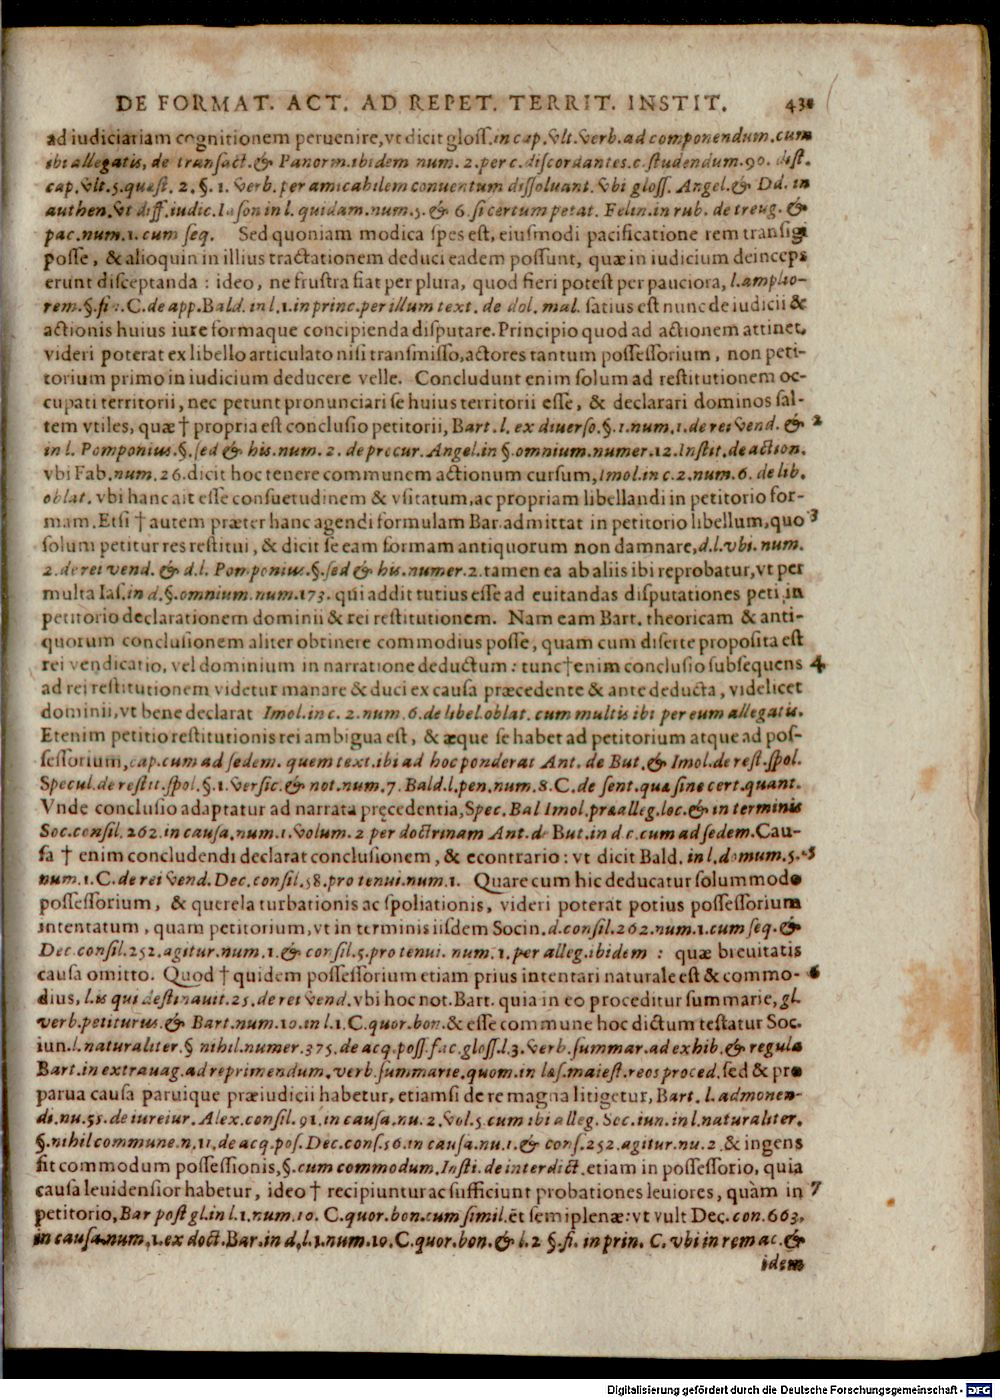 DE FORMAT. ACT. AD REPET. TERRIT. INSTIT. 431
ad iudiciariam cognitionem peruenire, vt dicit gloss. in cap. vlt. verb. ad componendum. cum
ibi allegatis, de transact. & Panorm. ibidem num. 2. per c. discordantes. c. studendum. 90. dist.
cap. vlt. 5. quæst. 2. §. 1. verb. per amicabilem conuentum dissoluant. vbi gloss. Angel. & Dd. in
authen. vt diff. iudic. Iason in l. quidam. num. 5. & 6. si certum petat. Felin. in rub. de treug. &
pac. num. 1. cum seq. Sed quoniam modica spes est, eiusmodi pacificatione rem transigi
posse, & alioquin in illius tractationem deduci eadem possunt, quæ in iudicium deinceps
erunt disceptanda : ideo, ne frustra fiat per plura, quod fieri potest per pauciora, l. amplio-
rem. §. fin. C. de app. Bald. in l. 1. in princ. per illum text. de dol. mal. satius est nunc de iudicii &
actionis huius iure formaque concipienda disputare. Principio quod ad actionem attinet,
videri poterat ex libello articulato nisi transmisso, actores tantum possessorium, non peti-
torium primo in iudicium deducere velle. Concludunt enim solum ad restitutionem oc-
cupati territorii, nec petunt pronunciari se huius territorii esse, & declarari dominos sal-
tem vtiles, quæ † propria est conclusio petitorii, Bart. l. ex diuerso. §. 1. num. 1. de rei vend. & 2
in l. Pomponius. §. sed & his. num. 2. de procur. Angel. in §. omnium. numer. 12. Instit. de action.
vbi Fab. num. 26. dicit hoc tenere communem actionum cursum, Imol. in c. 2. num. 6. de lib.
oblat. vbi hanc ait esse consuetudinem & vsitatum, ac propriam libellandi in petitorio for-
mam. Etsi † autem præter hanc agendi formulam Bar. admittat in petitorio libellum, quo 3
solum petitur res restitui, & dicit se eam formam antiquorum non damnare, d. l. vbi. num.
2. de rei vend. & d. l. Pomponius. §. sed & his. numer. 2. tamen ea ab aliis ibi reprobatur, vt per
multa Ias. in d. §. omnium. num. 173. qui addit tutius esse ad euitandas disputationes peti in
petitorio declarationem dominii & rei restitutionem. Nam eam Bart. theoricam & anti-
quorum conclusionem aliter obtinere commodius posse, quam cum diserte proposita est
rei vendicatio, vel dominium in narratione deductum : tunc † enim conclusio subsequens 4
ad rei restitutionem videtur manare & duci ex causa præcedente & ante deducta, videlicet
dominii, vt bene declarat Imol. in c. 2. num. 6. de libel. oblat. cum multis ibi per eum allegatis.
Etenim petitio restitutionis rei ambigua est, & æque se habet ad petitorium atque ad pos-
sessorium, cap. cum ad sedem. quem text. ibi ad hoc ponderat Ant. de But. & Imol. de rest. spol.
Specul. de restit. spol. §. 1. versic. & not. num. 7. Bald. l. pen. num. 8. C. de sent. quæ sine cert. quant.
Vnde conclusio adaptatur ad narrata pręcedentia, Spec. Bal Imol. præalleg. loc. & in terminis
Soc. consil. 262. in causa. num. 1. volum. 2 per doctrinam Ant. de But. in d. c. cum ad sedem. Cau-
sa † enim concludendi declarat conclusionem, & econtrario : vt dicit Bald. in l. domum. 5. 5
num. 1. C. de rei vend. Dec. consil. 58. pro tenui. num. 1. Quare cum hic deducatur solummodo
possessorium, & querela turbationis ac spoliationis, videri poterat potius possessorium
intentatum, quam petitorium, vt in terminis iisdem Socin. d. consil. 262. num. 1. cum seq. &
Dec. consil. 252. agitur. num. 1. & consil. 5. pro tenui. num. 1. per alleg. ibidem : quæ breuitatis
causa omitto. Quod † quidem possessorium etiam prius intentari naturale est & commo- 6
dius, l. is qui destinauit. 25. de rei vend. vbi hoc not. Bart. quia in eo proceditur summarie, gl.
verb. petiturus. & Bart. num. 10. in l. 1. C. quor. bon. & esse commune hoc dictum testatur Soc.
iun. l. naturaliter. § nihil. numer. 375. de acq. poss. fac. gloss. l. 3. verb. summar. ad exhib. & regula
Bart. in extrauag. ad reprimendum. verb. summarie. quom. in læs. maiest. reos proced. sed & pro
parua causa paruique præiudicii habetur, etiamsi de re magna litigetur, Bart. l. admonen-
di. nu. 55. de iureiur. Alex. consil. 91. in causa. nu. 2. vol. 5. cum ibi alleg. Soc. iun. in l. naturaliter.
§. nihil commune. n. 11. de acq. pos. Dec. cons. 56. in causa. nu. 1. & cons. 252. agitur. nu. 2. & ingens
fit commodum possessionis, §. cum commodum. Insti. de interdict. etiam in possessorio, quia
causa leuidensior habetur, ideo † recipiuntur ac sufficiunt probationes leuiores, quàm in 7
petitorio, Bar post gl. in l. 1. num. 10. C. quor. bon. cum simil. et semiplenæ : vt vult Dec. con. 663.
in causa. num. 1. ex doct. Bar. in d. l. 1. num. 10. C. quor. bon. & l. 2 §. fi. in prin. C. vbi in rem ac. &
idem
Digitalisierung gefördert durch die Deutsche Forschungsgemeinschaft - DFG